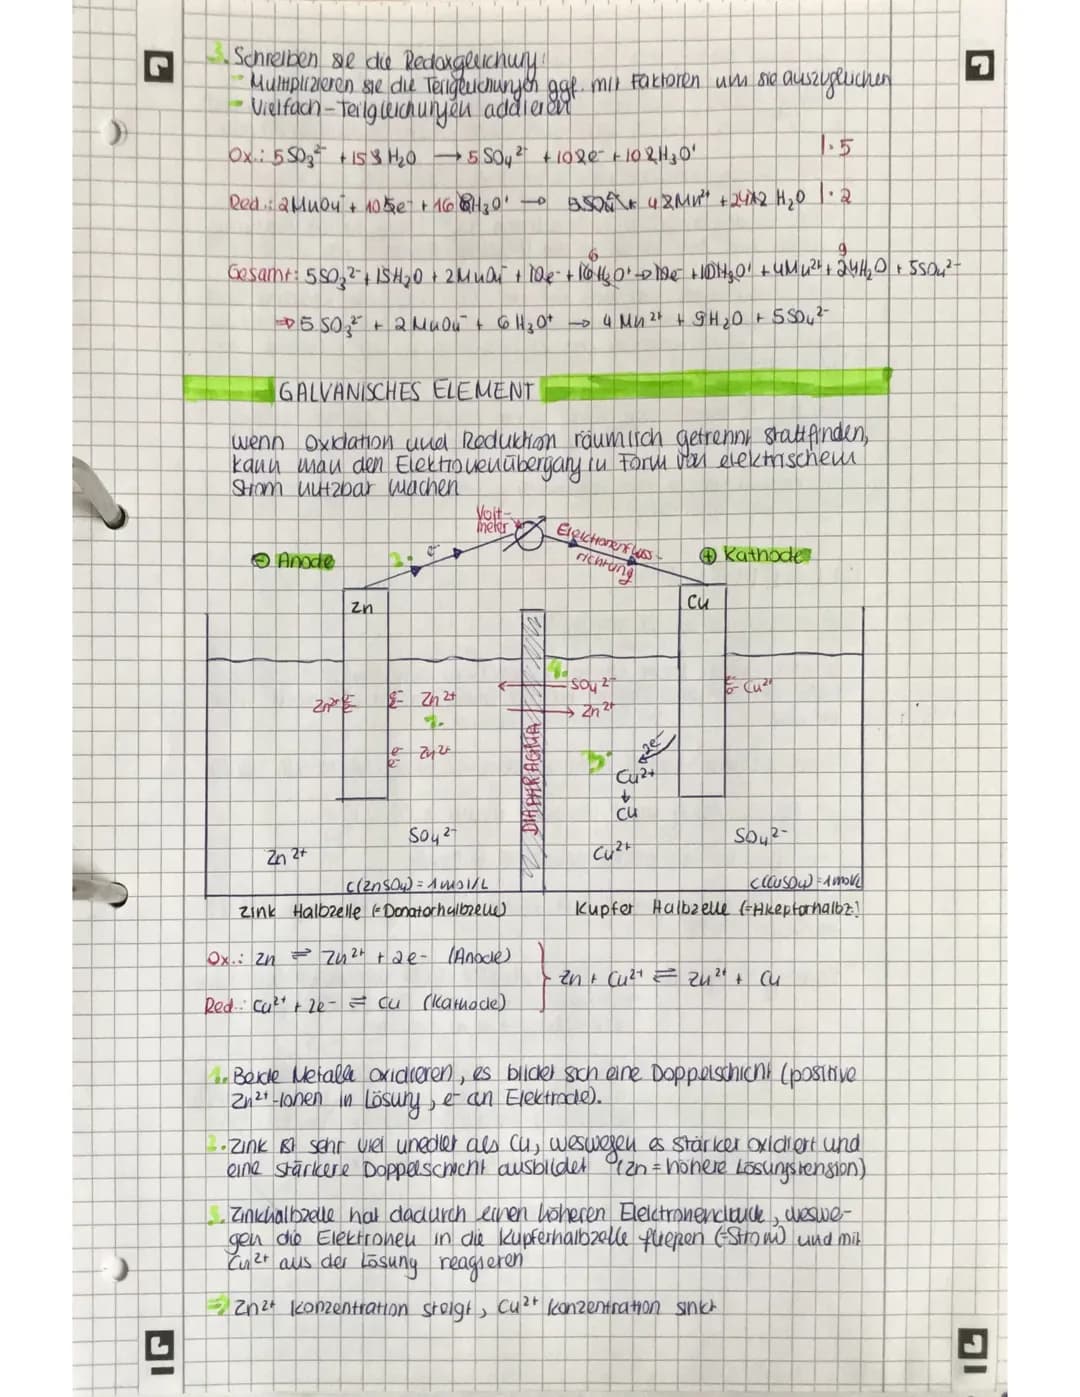 3. Schreiben sie die Redoxgleichung:
- Multiplizieren sie die Teilgleichungen ggf. mit Faktoren um sie auszugleichen
- Vielfach-Teilgleichungen addieren
Ox.: 5 SO₃²⁻ + 15 H₂O → 5 SO₄²⁻ + 10 e⁻ + 10 H₃O⁺ |·5
Red.: 2 MnO₄⁻ + 10 e⁻ + 16 H₃O⁺ → 4 Mn²⁺ + 24 H₂O |·2
6 9
Gesamt: 5 SO₃²⁻ + 15 H₂O + 2 MnO₄⁻ + 10e⁻ + 16 H₃O⁺ → 10e⁻ + 10 H₃O⁺ + 4 Mn²⁺ + 24 H₂O + 5 SO₄²⁻
⇒ 5 SO₃²⁻ + 2 MnO₄⁻ + 6 H₃O⁺ → 4 Mn²⁺ + 9 H₂O + 5 SO₄²⁻
GALVANISCHES ELEMENT
wenn Oxidation und Reduktion räumlich getrennt stattfinden,
kann man den Elektronenübergang in Form von elektrischem
Strom nutzbar machen
Volt-
meter
Elektronenfluss-
richtung
⊖ Anode
2. e⁻
⊕ Kathode
Zn
Cu
4.
SO₄²⁻
Zn²⁺
Zn²⁺ e⁻
e⁻ Zn²⁺
e⁻ Cu²⁺
1.
e⁻ Zn²⁺
e⁻
DIAPHRAGMA
3.
2e⁻
Cu²⁺
↓
Cu
SO₄²⁻
SO₄²⁻
Zn²⁺
Cu²⁺
c(ZnSO₄) = 1 mol/L
c(CuSO₄) = 1 mol/L
Zink Halbzelle (=Donatorhalbzelle)
Kupfer Halbzelle (=Akzeptorhalbz.)
Ox.: Zn ⇌ Zn²⁺ + 2e⁻ (Anode)
Zn + Cu²⁺ ⇌ Zn²⁺ + Cu
Red.: Cu²⁺ + 2e⁻ ⇌ Cu (Kathode)
1. Beide Metalle oxidieren, es bildet sich eine Doppelschicht (positive
Zn²⁺-Ionen in Lösung, e⁻ an Elektrode).
2. Zink ist sehr viel unedler als Cu, weswegen es stärker oxidiert und
eine stärkere Doppelschicht ausbildet (Zn = höhere Lösungstension)
3. Zinkhalbzelle hat dadurch einen höheren Elektronendruck, deswe-
gen die Elektronen in die Kupferhalbzelle fließen (=Strom) und mit
Cu²⁺ aus der Lösung reagieren
⇒ Zn²⁺ Konzentration steigt, Cu²⁺ Konzentration sinkt